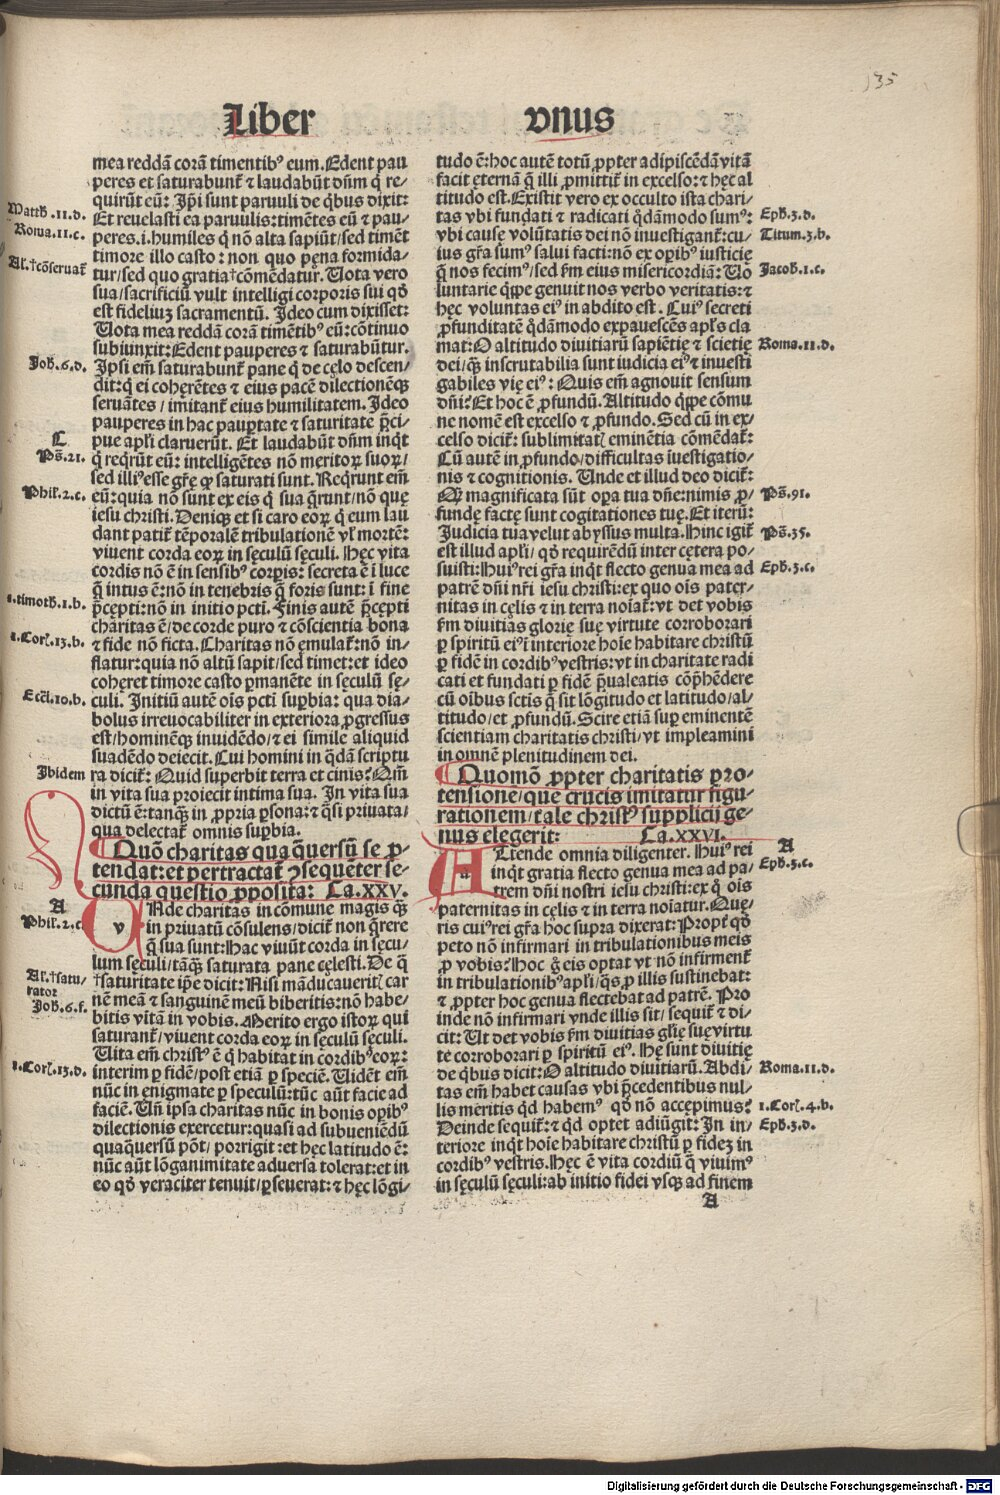 135
Liber vnus
mea reddã corã timentibꝰ eum. Edent pau
peres et saturabunt̃ ⁊ laudabũt dñm q̃ re-
quirũt eũ: Ip̃i sunt paruuli de q̃bus dixit:
Matth̃.11.d.
Et reuelasti ea paruulis: timẽtes eũ ⁊ pau-
Roma.11.c.
peres.i.humiles q̃ nõ alta sapiũt/sed timẽt
timore illo casto: non quo pęna formida-
Al.†cõseruat̃
tur/sed quo gratia†cõmẽdatur. Uota vero
sua/sacrificiũ vult intelligi corporis sui qđ
est fideliuʒ sacramentũ. Ideo cum dixisset:
Uota mea reddã corã timẽtibꝰ eũ: cõtinuo
subiunxit: Edent pauperes ⁊ saturabũtur.
Joh̃.6.d.
Ipsi em̃ saturabunt̃ pane q̃ de cęlo descen/
dit: q̃ ei cohęrẽtes ⁊ eius pacẽ dilectionẽqꝫ
seruãtes/imitant̃ eius humilitatem. Ideo
pauperes in hac paup̱tate ⁊ saturitate p̃ci-
C
pue apl̃i claruerũt. Et laudabũt dñm inq̃t
Ps̃.21.
q̃ req̃rũt eũ: intelligẽtes nõ meritoꝝ suoꝝ/
sed illiꝰ esse gr̃ę ꝙ saturati sunt. Req̃runt em̃
Phil̃.2.c.
eũ: quia nõ sunt ex eis q̃ sua q̃runt/nõ quę
iesu christi. Deniqꝫ et si caro eoꝝ q̃ eum lau
dant patit̃ tẽporalẽ tribulationẽ vl̃ mortẽ:
viuent corda eoꝝ in sęculũ sęculi. Hęc vita
cordis nõ ẽ in sensibꝰ corp̱is: secreta ẽ i luce
q̃ intus ẽ: nõ in tenebris q̃ foris sunt: ĩ fine
1.timoth̃.1.b.
p̃cepti: nõ in initio pcti. Finis autẽ p̃cepti
charitas ẽ/de corde puro ⁊ cõscientia bona
1.Corĩ.13.b.
⁊ fide nõ ficta. Charitas nõ ęmulat̃: nõ in-
flatur: quia nõ altũ sapit/sed timet: et ideo
cohęret timore casto p̱manẽte in sęculũ sę-
Eccl̃.10.b.
culi. Initiũ autẽ oĩs pcti sup̱bia: qua dia-
bolus irreuocabiliter in exteriora ꝓgressus
est/hominẽqꝫ inuidẽdo/⁊ ei simile aliquid
suadẽdo deiecit. Cui homini in q̃dã scriptu
Ibidem
ra dicit̃: Quid superbit terra et cinis? Qm̃
in vita sua proiecit intima sua. In vita sua
dictũ ẽ: tanqꝫ in ꝓpria p̱sona: ⁊ q̃si priuata/
qua delectat̃ omnis sup̱bia.
Quõ charitas qua q̃uersũ se ꝓ-
tendat: et pertractat̃ ꝯsequẽter se-
cunda questio ꝓposita: Ca.XXV.
A
VNde charitas in cõmune magis q̃ꝫ
Phil̃.2.c.
in priuatũ cõsulens/dicit̃ non q̃rere
q̃ sua sunt: Hac viuũt corda in sęcu/
lum sęculi/tãq̃ꝫ saturata pane cęlesti. De q̃
Al.†satu/
rator
†saturitate ip̃e dicit: Nisi mãducaueritĩ car
Joh̃.6.f.
nẽ meã ⁊ sanguinẽ meũ biberitis: nõ habe/
bitis vitã in vobis. Merito ergo istoꝝ qui
saturant̃/viuent corda eoꝝ in sęculũ sęculi.
Uita em̃ christꝰ ẽ q̃ habitat in cordibꝰ eoꝝ:
1.Corĩ.13.d.
interim p̱ fidẽ/post etiã p̱ speciẽ. Uidẽt em̃
nũc in enigmate p̱ speculũ: tũc aũt facie ad
faciẽ. Uñ ipsa charitas nũc in bonis op̱ibꝰ
dilectionis exercetur: quasi ad subueniẽdũ
quaq̃uersũ põt/porrigit: et hęc latitudo ẽ:
nũc aũt lõganimitate aduersa tolerat: et in
eo qđ veraciter tenuit/p̱seuerat: ⁊ hęc lõgi/
tudo ẽ: hoc autẽ totũ ꝓpter adipiscẽdã vitã
facit ęternã q̃ illi ꝓmittit̃ in excelso: ⁊ hęc al
titudo est. Existit vero ex occulto ista chari/
tas vbi fundati ⁊ radicati q̃dãmodo sumꝰ:
Eph̃.3.d.
vbi cause volũtatis dei nõ inuestigant̃: cu/
Titum.3.b.
ius gr̃a sumꝰ salui facti: nõ ex op̱ibꝰ iusticię
q̃ nos fecimꝰ/sed ẜm eius misericordiã: Uo
Jacob.1.c.
luntarie q̃ꝓpe genuit nos verbo veritatis: ⁊
hęc voluntas eiꝰ in abdito est. Cuiꝰ secreti
ꝓfunditatẽ q̃dãmodo expauescẽs apl̃s cla
mat: O altitudo diuitiarũ sapiẽtię ⁊ scietię
Roma.11.d.
dei/q̃ꝫ inscrutabilia sunt iudicia eiꝰ ⁊ inuesti
gabiles vię eiꝰ: Quis em̃ agnouit sensum
dñi? Et hoc ẽ ꝓfundũ. Altitudo q̃ppe cõmu
ne nomẽ est excelso ⁊ ꝓfundo. Sed cũ in ex/
celso dicit̃: sublimitatĩ eminẽtia cõmẽdat̃:
Cũ autẽ in ꝓfundo/difficultas iuestigatio/
nis ⁊ cognitionis. Unde et illud deo dicit̃:
Q̃ magnificata sũt oꝑa tua dñe: nimis ꝓ/
Ps̃.91.
fundę factę sunt cogitationes tuę. Et iterũ:
Iudicia tua velut abyssus multa. Hinc igit̃
Ps̃.35.
est illud apl̃i/qđ requirẽdũ inter cętera po/
suisti: Huiꝰ rei gr̃a inq̃t flecto genua mea ad
Eph̃.3.c.
patrẽ dñi nr̃i iesu christi: ex quo oĩs pater/
nitas in cęlis ⁊ in terra noiat̃: vt det vobis
ẜm diuitias glorię suę virtute corroborari
p̱ spiritũ eiꝰ ĩ interiore hoĩe habitare christũ
p̱ fidẽ in cordibꝰ vestris: vt in charitate radi
cati et fundati p̱ fidẽ p̃ualeatis cõp̃hẽdere
cũ oĩbus sctis q̃ sit lõgitudo et latitudo/al-
titudo/et ꝓfundũ. Scire etiã sup̱ eminentẽ
scientiam charitatis christi/vt impleamini
in omnẽ plenitudinem dei.
Quomõ ꝓpter charitatis pro-
tensione/que crucis imitatur figu-
rationem/tale christꝰ supplicij ge-
nus elegerit: Ca.XXVI.
A
ATtende omnia diligenter. Huiꝰ rei
Eph̃.3.c.
inq̃t gratia flecto genua mea ad pa/
trem dñi nostri iesu christi: ex q̃ oĩs
paternitas in cęlis ⁊ in terra noĩatur. Quę/
ris cuiꝰ rei gr̃a hoc supra dixerat: Propt̃ qđ
peto nõ infirmari in tribulationibus meis
ꝓ vobis? Hoc q̃ eis optat vt nõ infirment̃
in tribulationibꝰ apl̃i/q̃s ꝓ illis sustinebat:
⁊ ꝓpter hoc genua flectebat ad patrẽ. Pro
inde nõ infirmari vnde illis sit/sequit̃ ⁊ di/
cit: Ut det vobis ẜm diuitias gl̃ię suę virtu
te corroborari p̱ spiritũ eiꝰ. Hę sunt diuitię
de q̃bus dicit: O altitudo diuitiarũ. Abdi/
Roma.11.d.
tas em̃ habet causas vbi p̃cedentibus nul/
lis meritis q̃d habemꝰ qđ nõ accępimus?
1.Corĩ.4.b.
Deinde sequit̃: ⁊ q̃d optet adiũgit: In in/
Eph̃.3.d.
teriore inq̃t hoĩe habitare christũ p̱ fideʒ in
cordibꝰ vestris. Hęc ẽ vita cordiũ q̃ viuimꝰ
in sęculũ sęculi: ab initio fidei vsqꝫ ad finem
A
Digitalisierung gefördert durch die Deutsche Forschungsgemeinschaft - DFG